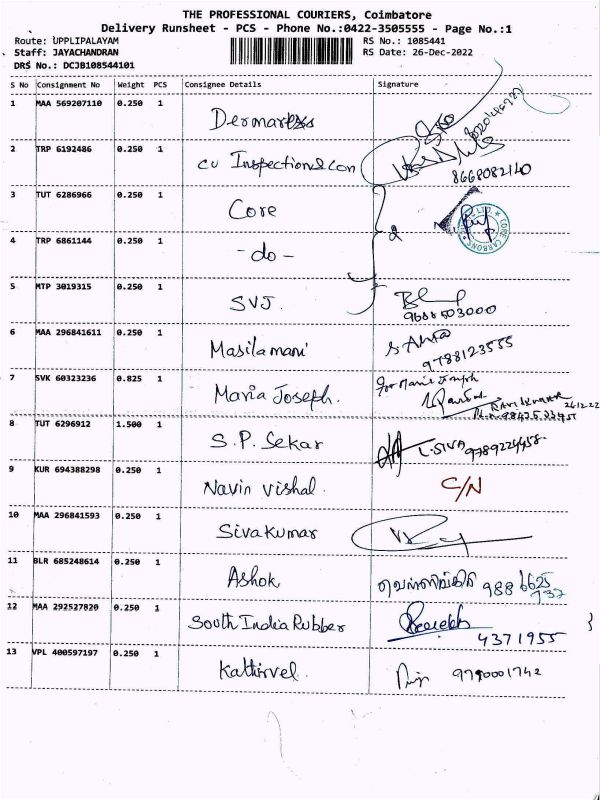 THE PROFESSIONAL COURIERS, Coimbatore
Delivery Runsheet - PCS - Phone No.:0422-3505555 - Page No.:1
Route: UPPLIPALAYAM RS No.: 1085441
Staff: JAYACHANDRAN RS Date: 26-Dec-2022
DRS No.: DCJB108544101
S No Consignment No Weight PCS Consignee Details Signature
1 MAA 569207110 0.250 1
2 TRP 6192486 0.250 1 cu Inspection & con 8668082140
3 TUT 6286966 0.250 1 Core
4 TRP 6861144 0.250 1 -do- 2
5 MTP 3019315 0.250 1 SVJ. 9688503000
6 MAA 296841611 0.250 1 Masilamani 9788123555
7 SVK 60323236 0.825 1 Maria Joseph. for Maria Joseph
8 TUT 6296912 1.500 1 S.P. Sekar L.SIVA 9789224458
9 KUR 694388298 0.250 1 Navin vishal. C/N
10 MAA 296841593 0.250 1 Sivakumar
11 BLR 685248614 0.250 1 Ashok 988 6625 732
12 MAA 292527820 0.250 1 South India Rubber 4371955
13 VPL 400597197 0.250 1 Kathirvel 9790001742